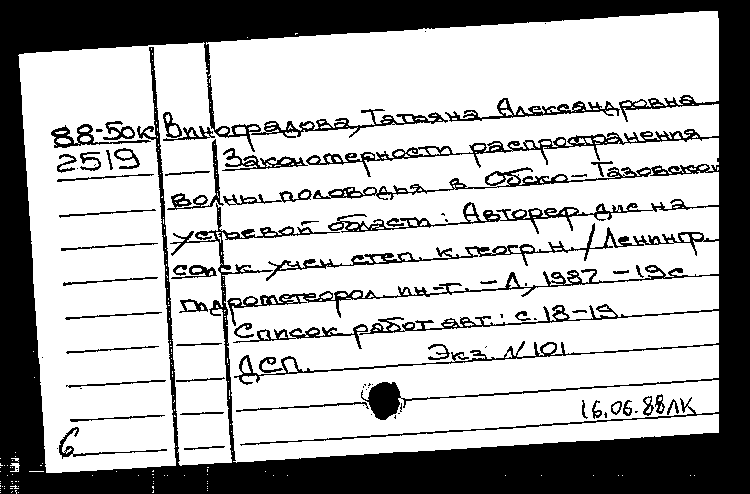 88-50к Виноградова, Татьяна Александровна
2519 Закономерности распространения
волны половодья в Обско-Тазовской
устьевой области: Автореф. дис на
соиск учен степ. к. геогр. н. / Ленингр.
гидрометеорол. ин-т. - Л., 1987 - 19 с
Список работ авт.: с. 18-19.
ДСП. Экз. N 101
16.06.88 ЛК
6